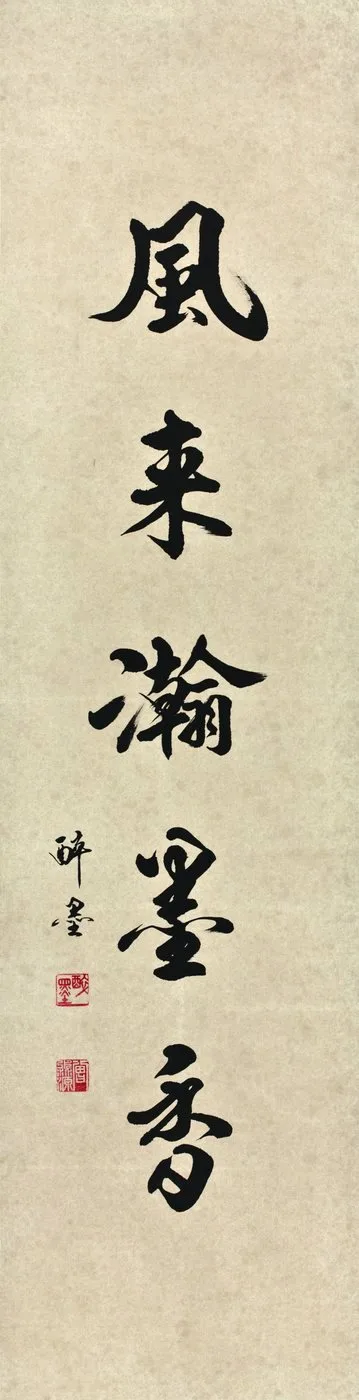 風来瀚墨香
醉墨
醉墨